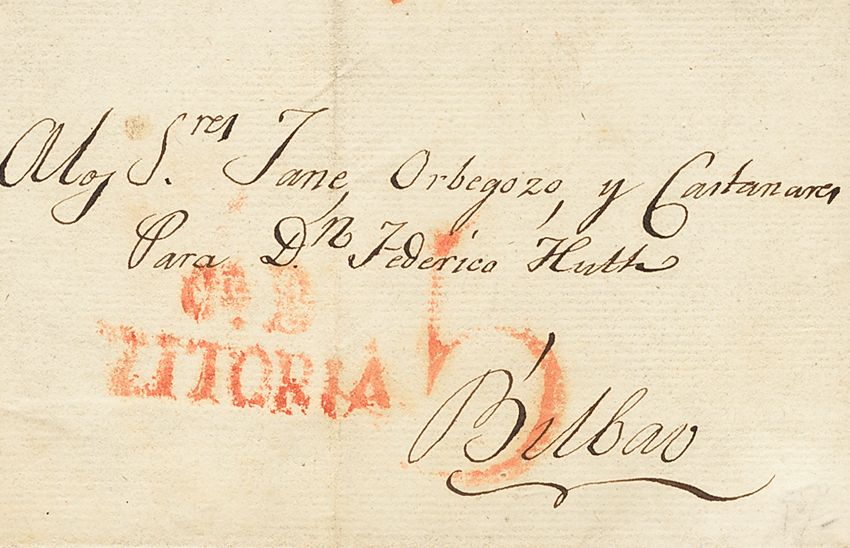 A los S.res Jane, Orbegozo, y Castanares
Para D.n Federico Huth
Cn. B
VITORIA
5
Bilbao